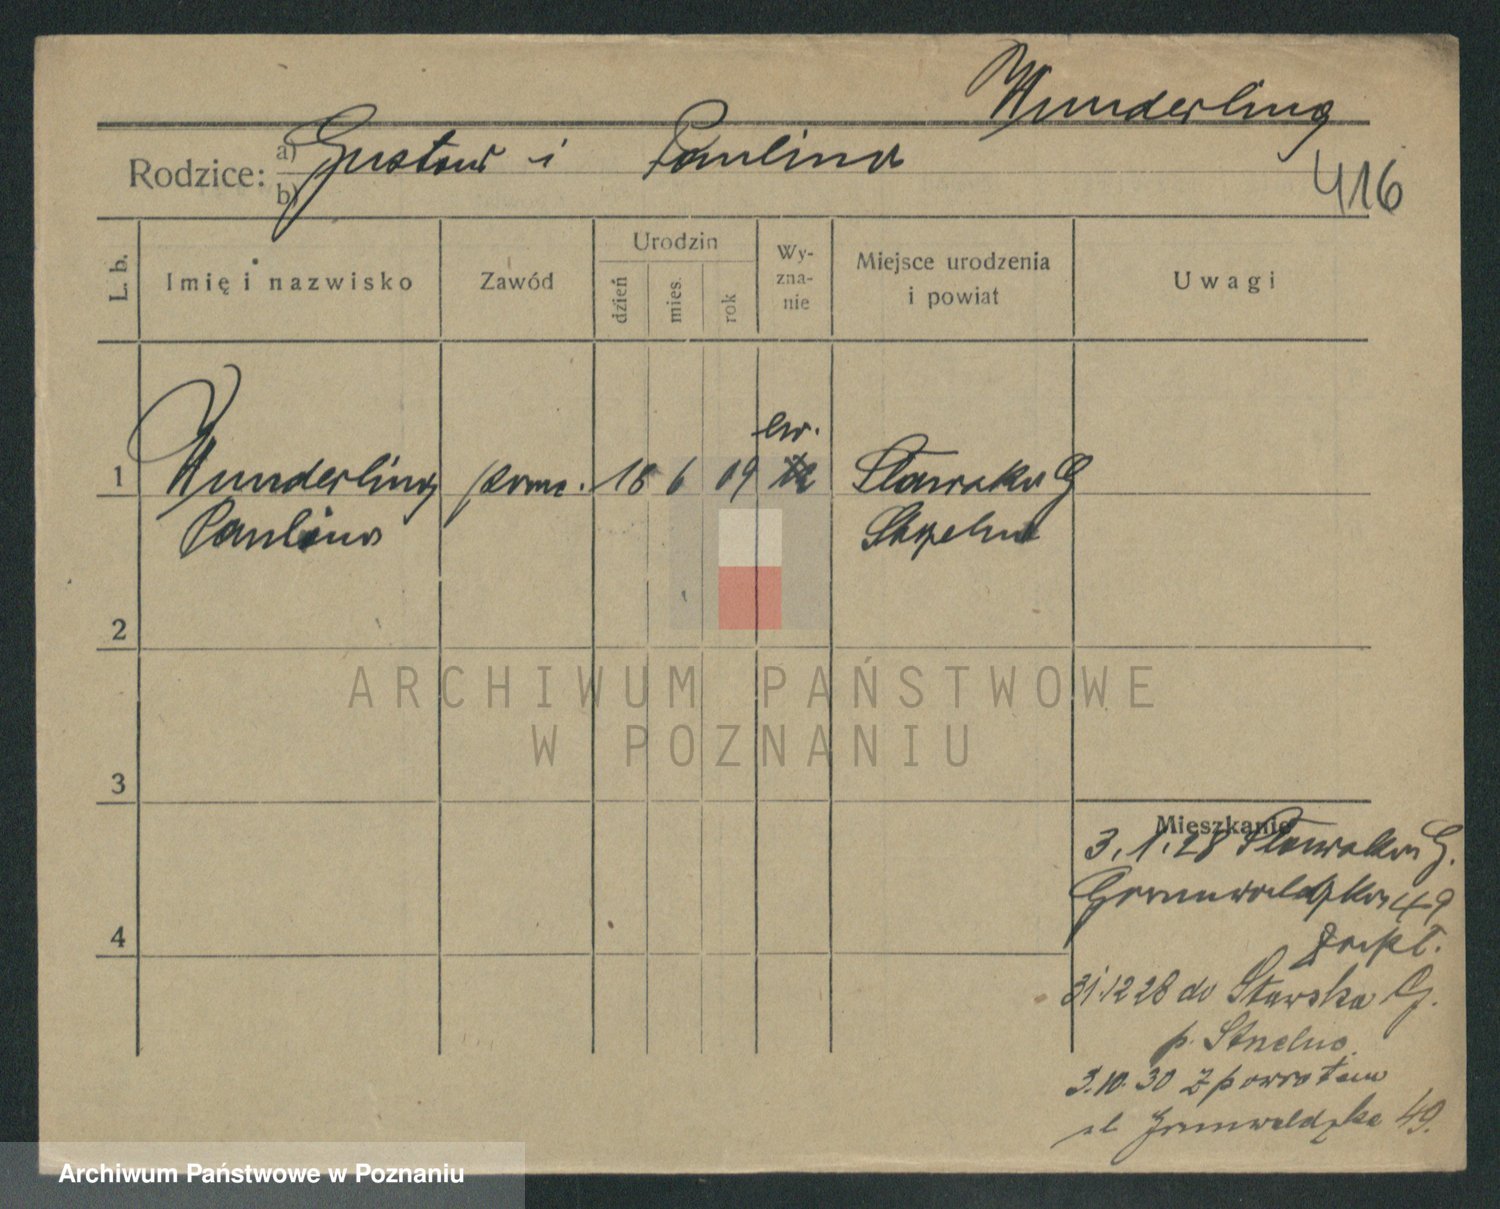 Wunderling
Rodzice: a) Gustaw i Paulina
b)
416
L. b.
Imię i nazwisko
Zawód
Urodzin
dzień
mies.
rok
Wy-
zna-
nie
Miejsce urodzenia
i powiat
Uwagi
ew.
1 Wunderling 18 6 09
Paulina Strzelno
2
3
4
Mieszkanie
3.1.28
Grunwaldzka 49
31.12 28 do Stawska G.
p. Strzelno
3.10.30 z powrotem
ul. Grunwaldzka 49.
ARCHIWUM PAŃSTWOWE
W POZNANIU
Archiwum Państwowe w Poznaniu